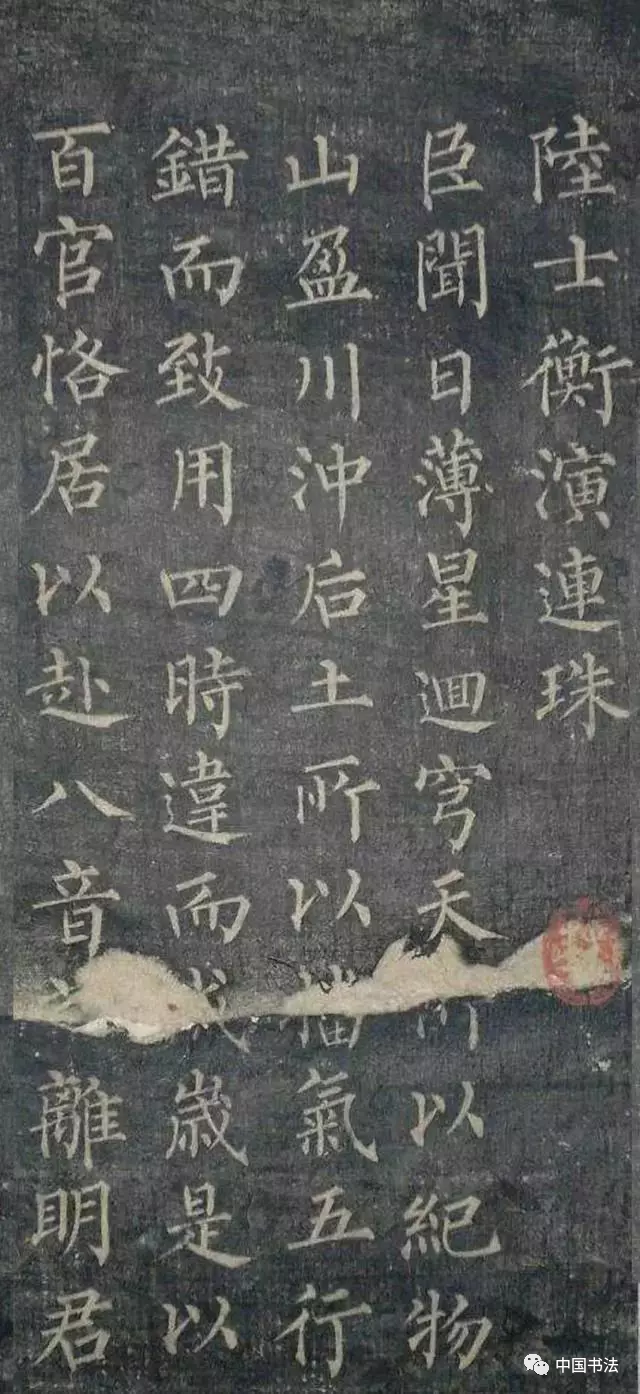 陸士衡演連珠
臣聞日薄星迴穹天所以紀物
山盈川沖后土所以播氣五行
錯而致用四時違而成歲是以
百官恪居以赴八音離明君
中国书法